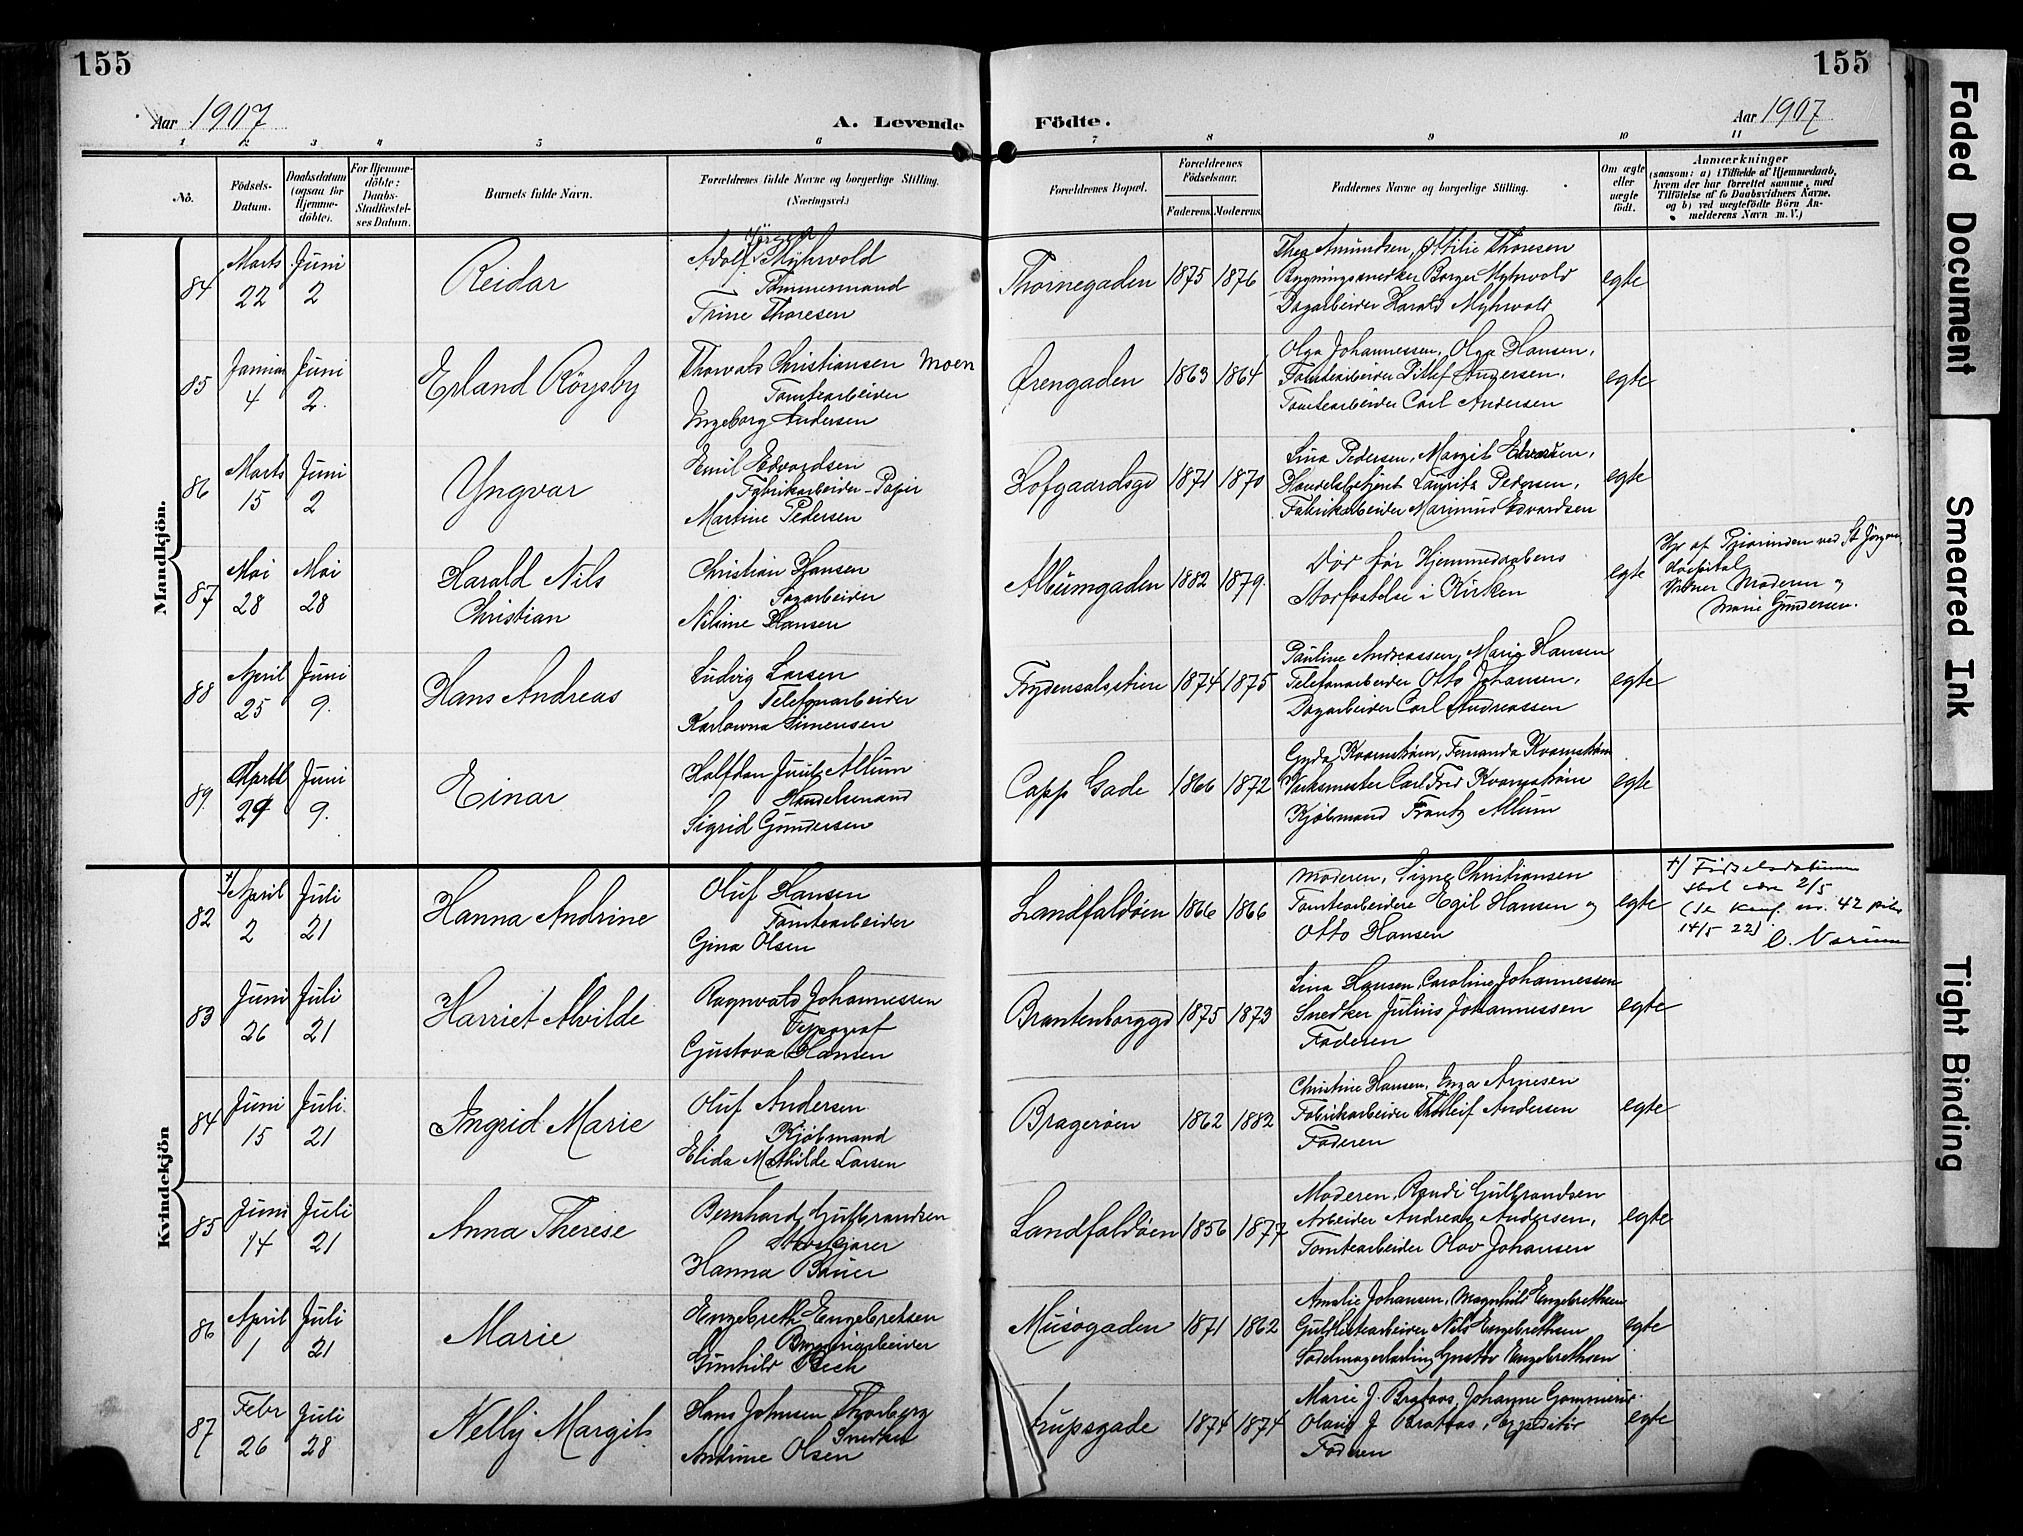 155
155
Aar 1907
A. Levende
Födte.
Aar 1907
1 2 3 4 5 6 7 8 9 10 11
No.
Födsels-
Datum.
Daabsdatum
(ogsaa for
Hjemme-
döbte).
For Hjemme-
döbte:
Daabs-
Stadfæstel-
ses Datum.
Barnets fulde Navn.
Forældrenes fulde Navne og borgerlige Stilling.
(Næringsvei.)
Forældrenes Bopæl.
Forældrenes
Födselsaar.
Faderens. Moderens.
Faddernes Navne og borgerlige Stilling.
Om ægte
eller
uægte
födt.
Anmærkninger
(saasom: a) i Tilfælde af Hjemmedaab,
hvem der har forrettet samme, med
Tilföielse af to Daabsvidners Navne,
og b) ved uægtefödte Börn An-
melderens Navn m. V.)
Mandkjön.
84
Marts
22
Juni
2
Reidar
Jörgen
Adolf Myhrvold
Tømmermand
Trine Thoresen
Thornegaden
1875 1876
Thea Amundsen, Ottilie Thoresen
Bygningssnedker Borger Myhrvold
Dagarbeider Harald Myhrvold
egte
85
Januar
4
Juni
2.
Erland Röysby
Thorvald Christiansen Moen
Tomtearbeider
Ingeborg Andersen
Ørengaden
1863 1864
Olga Johannessen, Olga Hansen,
Tomtearbeider Ditlef Andersen,
Tomtearbeider Carl Andersen
egte
86
Marts
15
Juni
2
Yngvar
Emil Edvardsen
Fabrikarbeider - Papir
Martine Pedersen
Hofgaardsgd
1871 1870
Lina Pedersen, Margit Edvardsen,
Handelsbetjent Lauritz Pedersen,
Fabrikarbeider Marinius Edvardsen
egte
87
Mai
28
Mai
28
Harald Nils
Christian
Christian Hansen
Sagarbeider
Nilsine Hansen
Albumgaden
1882 1879.
Død før Hjemmedaabens
Stadfæstelse i Kirken
egte
Hjd. af Priorinden ved St Jørgens
Hospital
Vidner Moderen og
Marie Gundersen.
88
April
25
Juni
9.
Hans Andreas
Ludvig Larsen
Telefonarbeider
Karlowna Simensen
Frydensalsstien
1874 1875
Pauline Andreassen, Marie Hansen
Telefonarbeider Otto Johansen,
Dagarbeider Carl Andreassen
egte
89.
29
Juni
9.
Einar
Halfdan Juul Allum
Handelsmand
Sigrid Gundersen
Capp. Gade
1866 1872
Gyda Kvarnstrøm, Fernanda Kvarnstrøm
Verksmester Carl Fred Kvarnstrøm
Kjøbmand Frantz Allum
egte
Kvindekjön
82
+)
April
2
Juli
21
Hanna Andrine
Oluf Hansen
Tomtearbeider
Gina Olsen
Landfaldøen
1866 1866
Moderen, Signe Christiansen
Tomtearbeidere Egil Hansen og
Otto Hansen
egte
+) Fødselsdatum
skal være 2/5
(se konf. nr. 42 piker
14/5 22)
83
Juni
26
Juli
21
Harriet Alvilde
Ragnvald Johannessen
Typograf
Gustava Hansen
Brantenborggd
1875 1873
Lina Hansen, Caroline Johannessen
Snedker Julius Johannessen
Faderen
egte
84
Juni
15
Juli
21
Ingrid Marie
Oluf Andersen
Kjøbmand
Elida Mathilde Larsen
Bragerøen
1862 1882
Christine Hansen, Inga Arnesen
Fabrikarbeider Thorleif Andersen
Faderen
egte
85
Juni
14
Juli
21
Anna Therese
Bernhard Gulbrandsen
Hanna Bauer
Landfaldøen
1856 1877
Moderen, Randi Gulbrandsen
Arbeider Andreas Andersen,
Tomtearbeider Olav Johansen
egte
86
April
1
Juli
21
Marie
Engebreth Engebretsen
Bryggeriarbeider
Gunhild Bech
Musøgaden
1871 1862
Amalie Johansen, Magnhild Engebrethsen
Guldlistearbeider Nils Engebrethsen
Sadelmagerlærling Gustav Engebrethsen
egte
87
Febr
26
Juli
28
Nelly Margit
Hans Johnsen Thorberg
Snedker
Andrine Olsen
trupsgade
1874 1874
Marie J. Brataas, Johanne Gommerud
Olaus J Brataas, Expeditör
Faderen
egte
Faded Document
Smeared Ink
Tight Binding